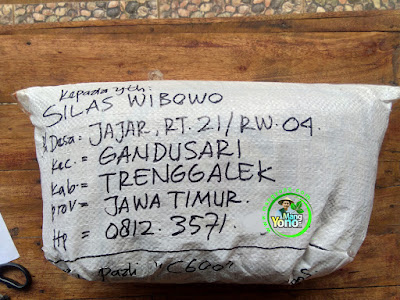 Kepada yth:
SILAS WIBOWO
Desa = JAJAR, RT. 21/RW. 04.
Kec. = GANDUSARI
Kab = TRENGGALEK
prov = JAWA TIMUR.
Hp = 0812. 3571.
Mang
Yono
Padi "C600"